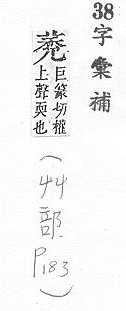 38
字彙補
巨篆切權
上聲耎也
(艸部 P183)